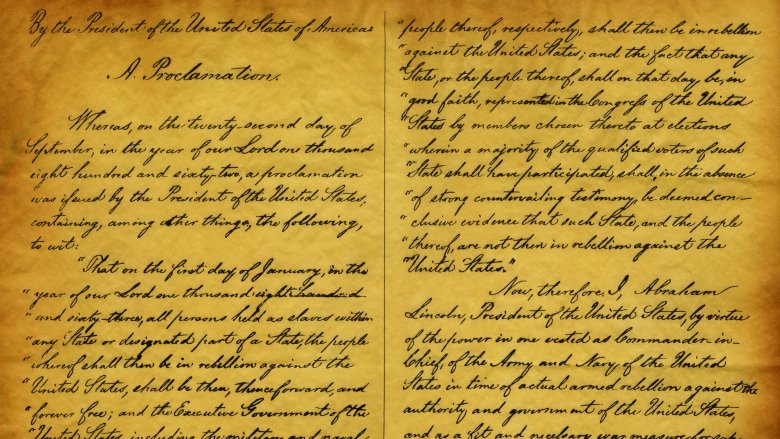 By the President of the United States of America:
A Proclamation.
Whereas, on the twenty-second day of
September, in the year of our Lord one thousand
eight hundred and sixty-two, a proclamation
was issued by the President of the United States,
containing, among other things, the following,
to wit:
"That on the first day of January, in the
"year of our Lord one thousand eight hundred
"and sixty-three, all persons held as slaves within
"any State or designated part of a State, the people
"whereof shall then be in rebellion against the
"United States, shall be then, thenceforward, and
"forever free; and the Executive Government of the
"United States, including the military and naval
"people thereof, respectively, shall then be in rebellion
"against the United States; and the fact that any
"State, or the people thereof, shall on that day be, in
"good faith, represented in the Congress of the United
"States by members chosen thereto at elections
"wherein a majority of the qualified voters of such
"State shall have participated, shall, in the absence
"of strong countervailing testimony, be deemed con-
"clusive evidence that such State, and the people
"thereof, are not then in rebellion against the
"United States."
Now, therefore I, Abraham
Lincoln, President of the United States, by virtue
of the power in me vested as Commander-in-
Chief, of the Army and Navy, of the United
States in time of actual armed rebellion against the
authority and government of the United States,
and as a fit and necessary war measure for sup-